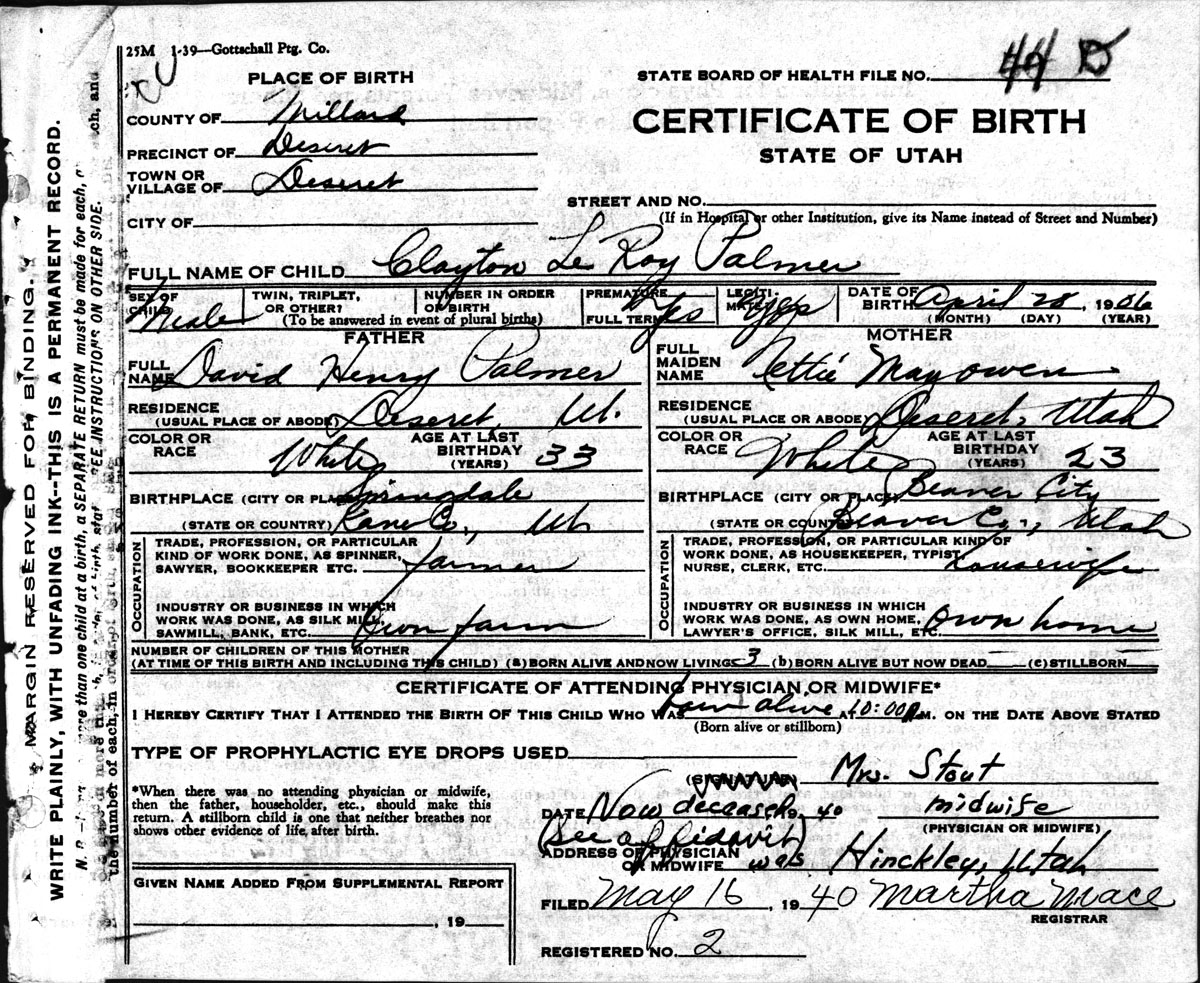 25M 1-39—Gottschall Ptg. Co.
PLACE OF BIRTH
STATE BOARD OF HEALTH FILE NO. 44 D
COUNTY OF Millard
CERTIFICATE OF BIRTH
PRECINCT OF Deseret
STATE OF UTAH
TOWN OR VILLAGE OF Deseret
STREET AND NO.
(If in Hospital or other Institution, give its Name instead of Street and Number)
CITY OF
FULL NAME OF CHILD Clayton Le Roy Palmer
SEX OF CHILD Male
TWIN, TRIPLET, OR OTHER?
NUMBER IN ORDER OF BIRTH
(To be answered in event of plural births)
PREMATURE
FULL TERM Yes
LEGITIMATE? Yes
DATE OF BIRTH April 28, 1906
(MONTH) (DAY) (YEAR)
FATHER
FULL NAME David Henry Palmer
RESIDENCE (USUAL PLACE OF ABODE) Deseret, Ut.
COLOR OR RACE White
AGE AT LAST BIRTHDAY (YEARS) 33
BIRTHPLACE (CITY OR PLACE) Springdale
(STATE OR COUNTRY) Kane Co., Ut
OCCUPATION
TRADE, PROFESSION, OR PARTICULAR
KIND OF WORK DONE, AS SPINNER,
SAWYER, BOOKKEEPER ETC. farmer
INDUSTRY OR BUSINESS IN WHICH
WORK WAS DONE, AS SILK MILL,
SAWMILL, BANK, ETC. Own farm
MOTHER
FULL MAIDEN NAME Nettie May Owen
RESIDENCE (USUAL PLACE OF ABODE) Deseret, Utah
COLOR OR RACE White
AGE AT LAST BIRTHDAY (YEARS) 23
BIRTHPLACE (CITY OR PLACE) Beaver City
(STATE OR COUNTRY) Beaver Co., Utah
OCCUPATION
TRADE, PROFESSION, OR PARTICULAR KIND OF
WORK DONE, AS HOUSEKEEPER, TYPIST,
NURSE, CLERK, ETC. housewife
INDUSTRY OR BUSINESS IN WHICH
WORK WAS DONE, AS OWN HOME,
LAWYER'S OFFICE, SILK MILL, ETC. Own home
NUMBER OF CHILDREN OF THIS MOTHER
(AT TIME OF THIS BIRTH AND INCLUDING THIS CHILD) (a) BORN ALIVE AND NOW LIVING 3 (b) BORN ALIVE BUT NOW DEAD — (c) STILLBORN —
CERTIFICATE OF ATTENDING PHYSICIAN OR MIDWIFE*
I HEREBY CERTIFY THAT I ATTENDED THE BIRTH OF THIS CHILD WHO WAS born alive AT 10:00 P.M. ON THE DATE ABOVE STATED
(Born alive or stillborn)
TYPE OF PROPHYLACTIC EYE DROPS USED
*When there was no attending physician or midwife,
then the father, householder, etc., should make this
return. A stillborn child is one that neither breathes nor
shows other evidence of life, after birth.
(SIGNATURE) Mrs. Stout
DATE Now deceased, 19 40 midwife
(PHYSICIAN OR MIDWIFE)
(See affidavit)
ADDRESS OF PHYSICIAN OR MIDWIFE was Hinckley, Utah
GIVEN NAME ADDED FROM SUPPLEMENTAL REPORT
, 19
FILED May 16, 1940 Martha Mace
REGISTRAR
REGISTERED NO. 2
MARGIN RESERVED FOR BINDING.
WRITE PLAINLY, WITH UNFADING INK--THIS IS A PERMANENT RECORD.
more than one child at a birth, a SEPARATE RETURN must be made for each,
SEE INSTRUCTIONS ON OTHER SIDE.
the number of each, in order of birth,